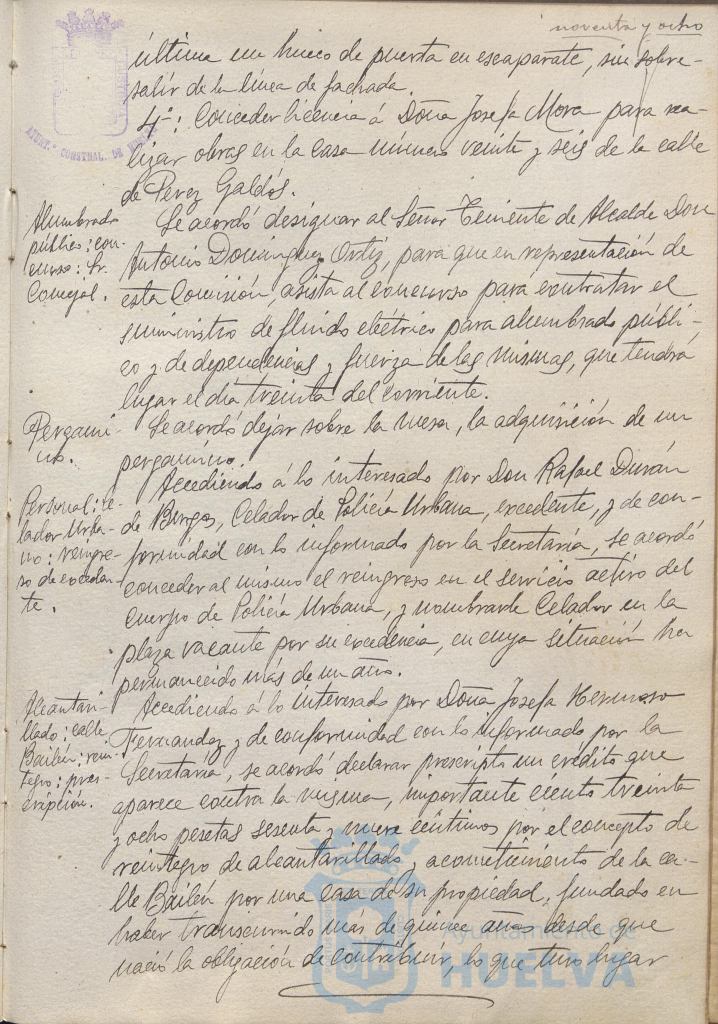 noventa y ocho
última un hueco de puerta en escaparate, sin sobre-
salir de la línea de fachada.
4º: Conceder licencia á Doña Josefa Mora para rea-
lizar obras en la casa número veinte y seis de la calle
de Perez Galdós.
Alumbrado
público: con-
curso: Sr.
Concejal.
Se acordó designar al Señor Teniente de Alcalde Don
Antonio Dominguez Ortiz, para que en representación de
esta Comisión, asista al concurso para contratar el
suministro de flúido eléctrico para alumbrado públi-
co y de dependencias y fuerza de las mismas, que tendrá
lugar el día treinta del corriente.
Pergami-
no.
Se acordó dejar sobre la mesa, la adquisición de un
pergamino.
Personal: Ce-
lador Urba-
no: reingre-
so de exceden-
te.
Accediendo á lo interesado por Don Rafael Durán
de Burgos, Celador de Policía Urbana, excedente, y de con-
formidad con lo informado por la Secretaría, se acordó
conceder al mismo el reingreso en el servicio activo del
Cuerpo de Policía Urbana, y nombrarle Celador en la
plaza vacante por su excedencia, en cuya situación ha
permanecido más de un año.
Alcantari-
llado: calle
Bailén: rein-
tegro: pres-
cripción.
Accediendo á lo interesado por Doña Josefa Hermoso
Fernandez y de conformidad con lo informado por la
Secretaría, se acordó declarar prescripto un crédito que
aparece contra la misma, importante ciento treinta
y ocho pesetas sesenta y nueve céntimos por el concepto de
reintegro de alcantarillado y acometimiento de la ca-
lle Bailén por una casa de su propiedad, fundado en
haber transcurrido más de quince años desde que
nació la obligación de contribuir, lo que tuvo lugar
AYUNT.º CONSTNAL. DE
Ayuntamiento de
HUELVA